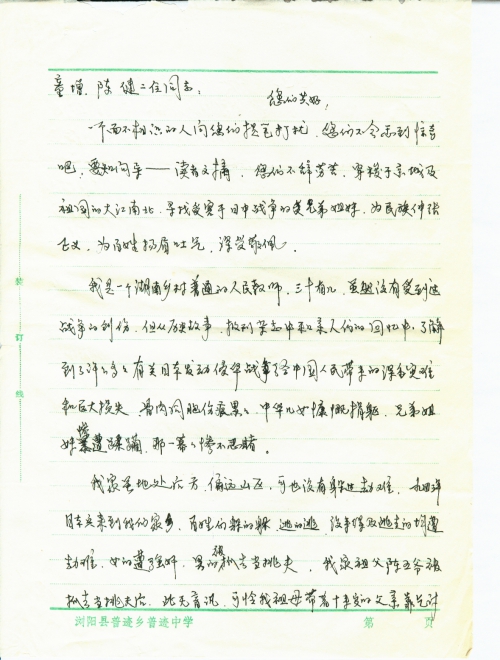 童增、陈健二位同志：
您们共好，
一个面不相识的人向您们提笔打扰，您们不会感到惊奇
吧，要知间早——读者文摘，您们不辞劳苦，穿梭于京城及
祖国的大江南北，寻找受害于日中战争的父兄弟姐妹，为民族伸张
正义，为百姓扬眉吐气，深受敬佩。
我是一个湖南乡村普通的人民教师，三十有几，虽然没有受到过
战争的创伤，但从历史故事，报刊杂志中和亲人们的回忆中，了解
到了许许多多有关日本发动侵华战争给中国人民带来的深重灾难
和巨大损失，骨肉同胞伤痕累累，中华儿女慷慨捐躯，兄弟姐
妹惨遭蹂躏，那一幕幕惨不忍睹。
我家虽地处后方，偏远山区，可也没有躲过劫难，
日本兵来到我们的家乡，百姓们躲的躲，逃的逃，没来得及逃走的均遭
劫难，女的遭强奸，男的被抓去当挑夫，我家祖父陈五爷被
抓去当挑夫后，此无音讯，可怜我祖母带着十来岁的父亲
装
订
线
浏阳县普迹乡普迹中学 第 页